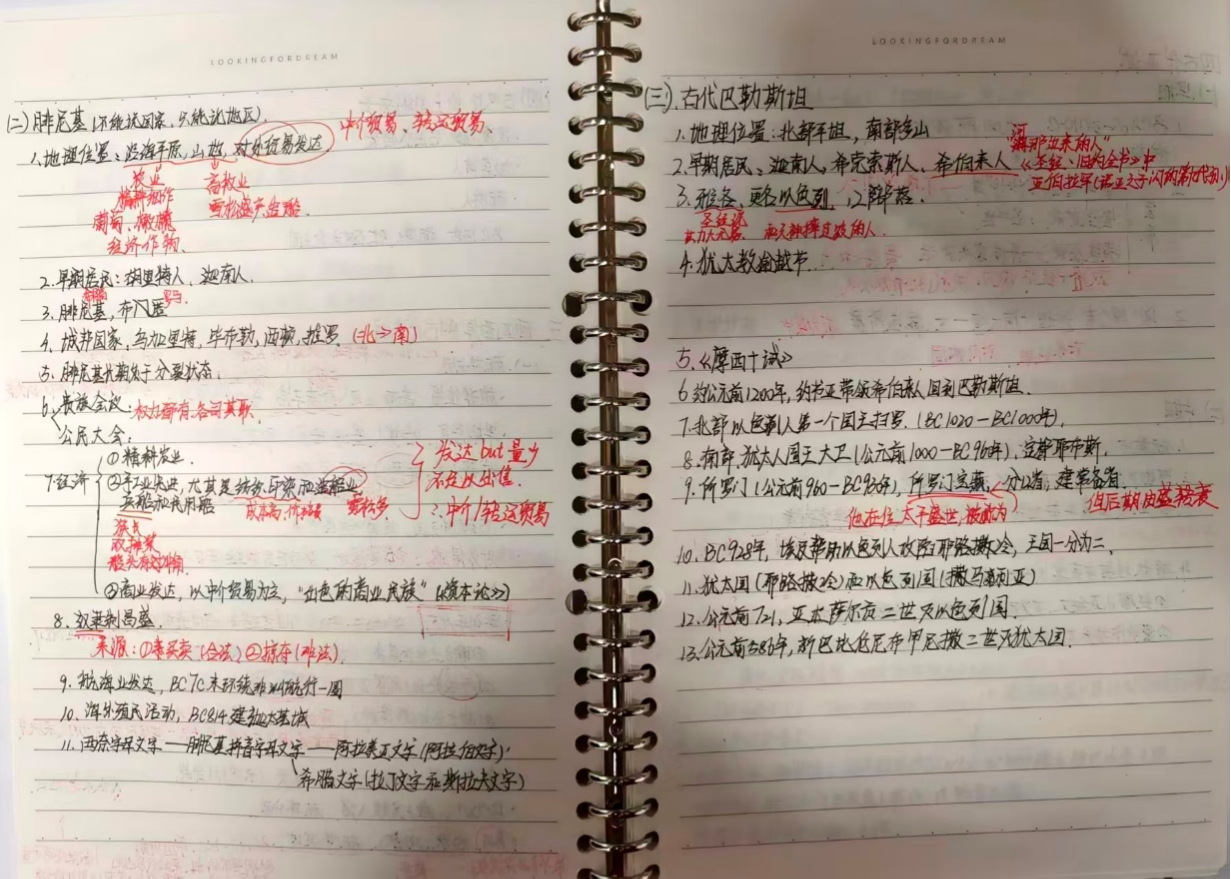 LOOKINGFORDREAM
(二)腓尼基(不能说国家,只能说地区).
中介贸易、转运贸易.
1.地理位置:沿海平原,山地,对外贸易发达
农业 畜牧业
精耕细作 雪松盛产造船.
葡萄、橄榄
经济作物.
2.早期居民:胡里特人、迦南人.
希腊 罗马
3.腓尼基,布匿
4.城邦国家,乌加里特,毕布勒,西顿,推罗(北→南)
5.腓尼基长期处于分裂状态.
6.贵族会议: 权力都有,各司其职.
公民大会:
7.经济
①精耕农业.
②手工业先进,尤其是纺织、印染和造船业
成本高,价格贵 雪松多
双桨
船头有冲角
发达but量少
不足以出售.
∴中介/转运贸易
③商业发达,以中介贸易为主,“出色的商业民族”(《资本论》)
8.奴隶制昌盛
来源:①奴隶买卖(合法)②掠夺(非法).
9.航海业发达,BC7C末环绕非洲航行一周
10.海外殖民活动,BC814建迦太基城
11.西奈字母文字——腓尼基拼音字母文字——阿拉美亚文字(阿拉伯文字)
希腊文字(拉丁文字和斯拉夫文字)
LOOKINGFORDREAM
(三).古代巴勒斯坦
1.地理位置:北部平坦,南部多山
“河那边来的人”
2.早期居民、迦南人,希克索斯人、希伯来人《圣经·旧约全书》中
3.雅各、更名以色列,12部落.
圣经说
与天神摔过跤的人.
4.犹太教逾越节.
5.《摩西十诫》
6.约公元前1200年,约书亚带领希伯来人回到巴勒斯坦.
7.北部以色列人第一个国王扫罗.(BC1020-BC1000年).
8.南部,犹太人国王大卫(公元前1000-BC960年),定都耶布斯.
9.所罗门(公元前960-BC930年),所罗门宝藏,分12省,建常备省.
他在位太平盛世,被称为 但后期由盛转衰
10.BC928年,埃及帮助以色列人攻陷耶路撒冷,王国一分为二.
11.犹太国(耶路撒冷)和以色列国(撒马利亚)
12.公元前721,亚术萨尔贡二世灭以色列国.
13.公元前586年,新巴比伦尼布甲尼撒二世灭犹太国.